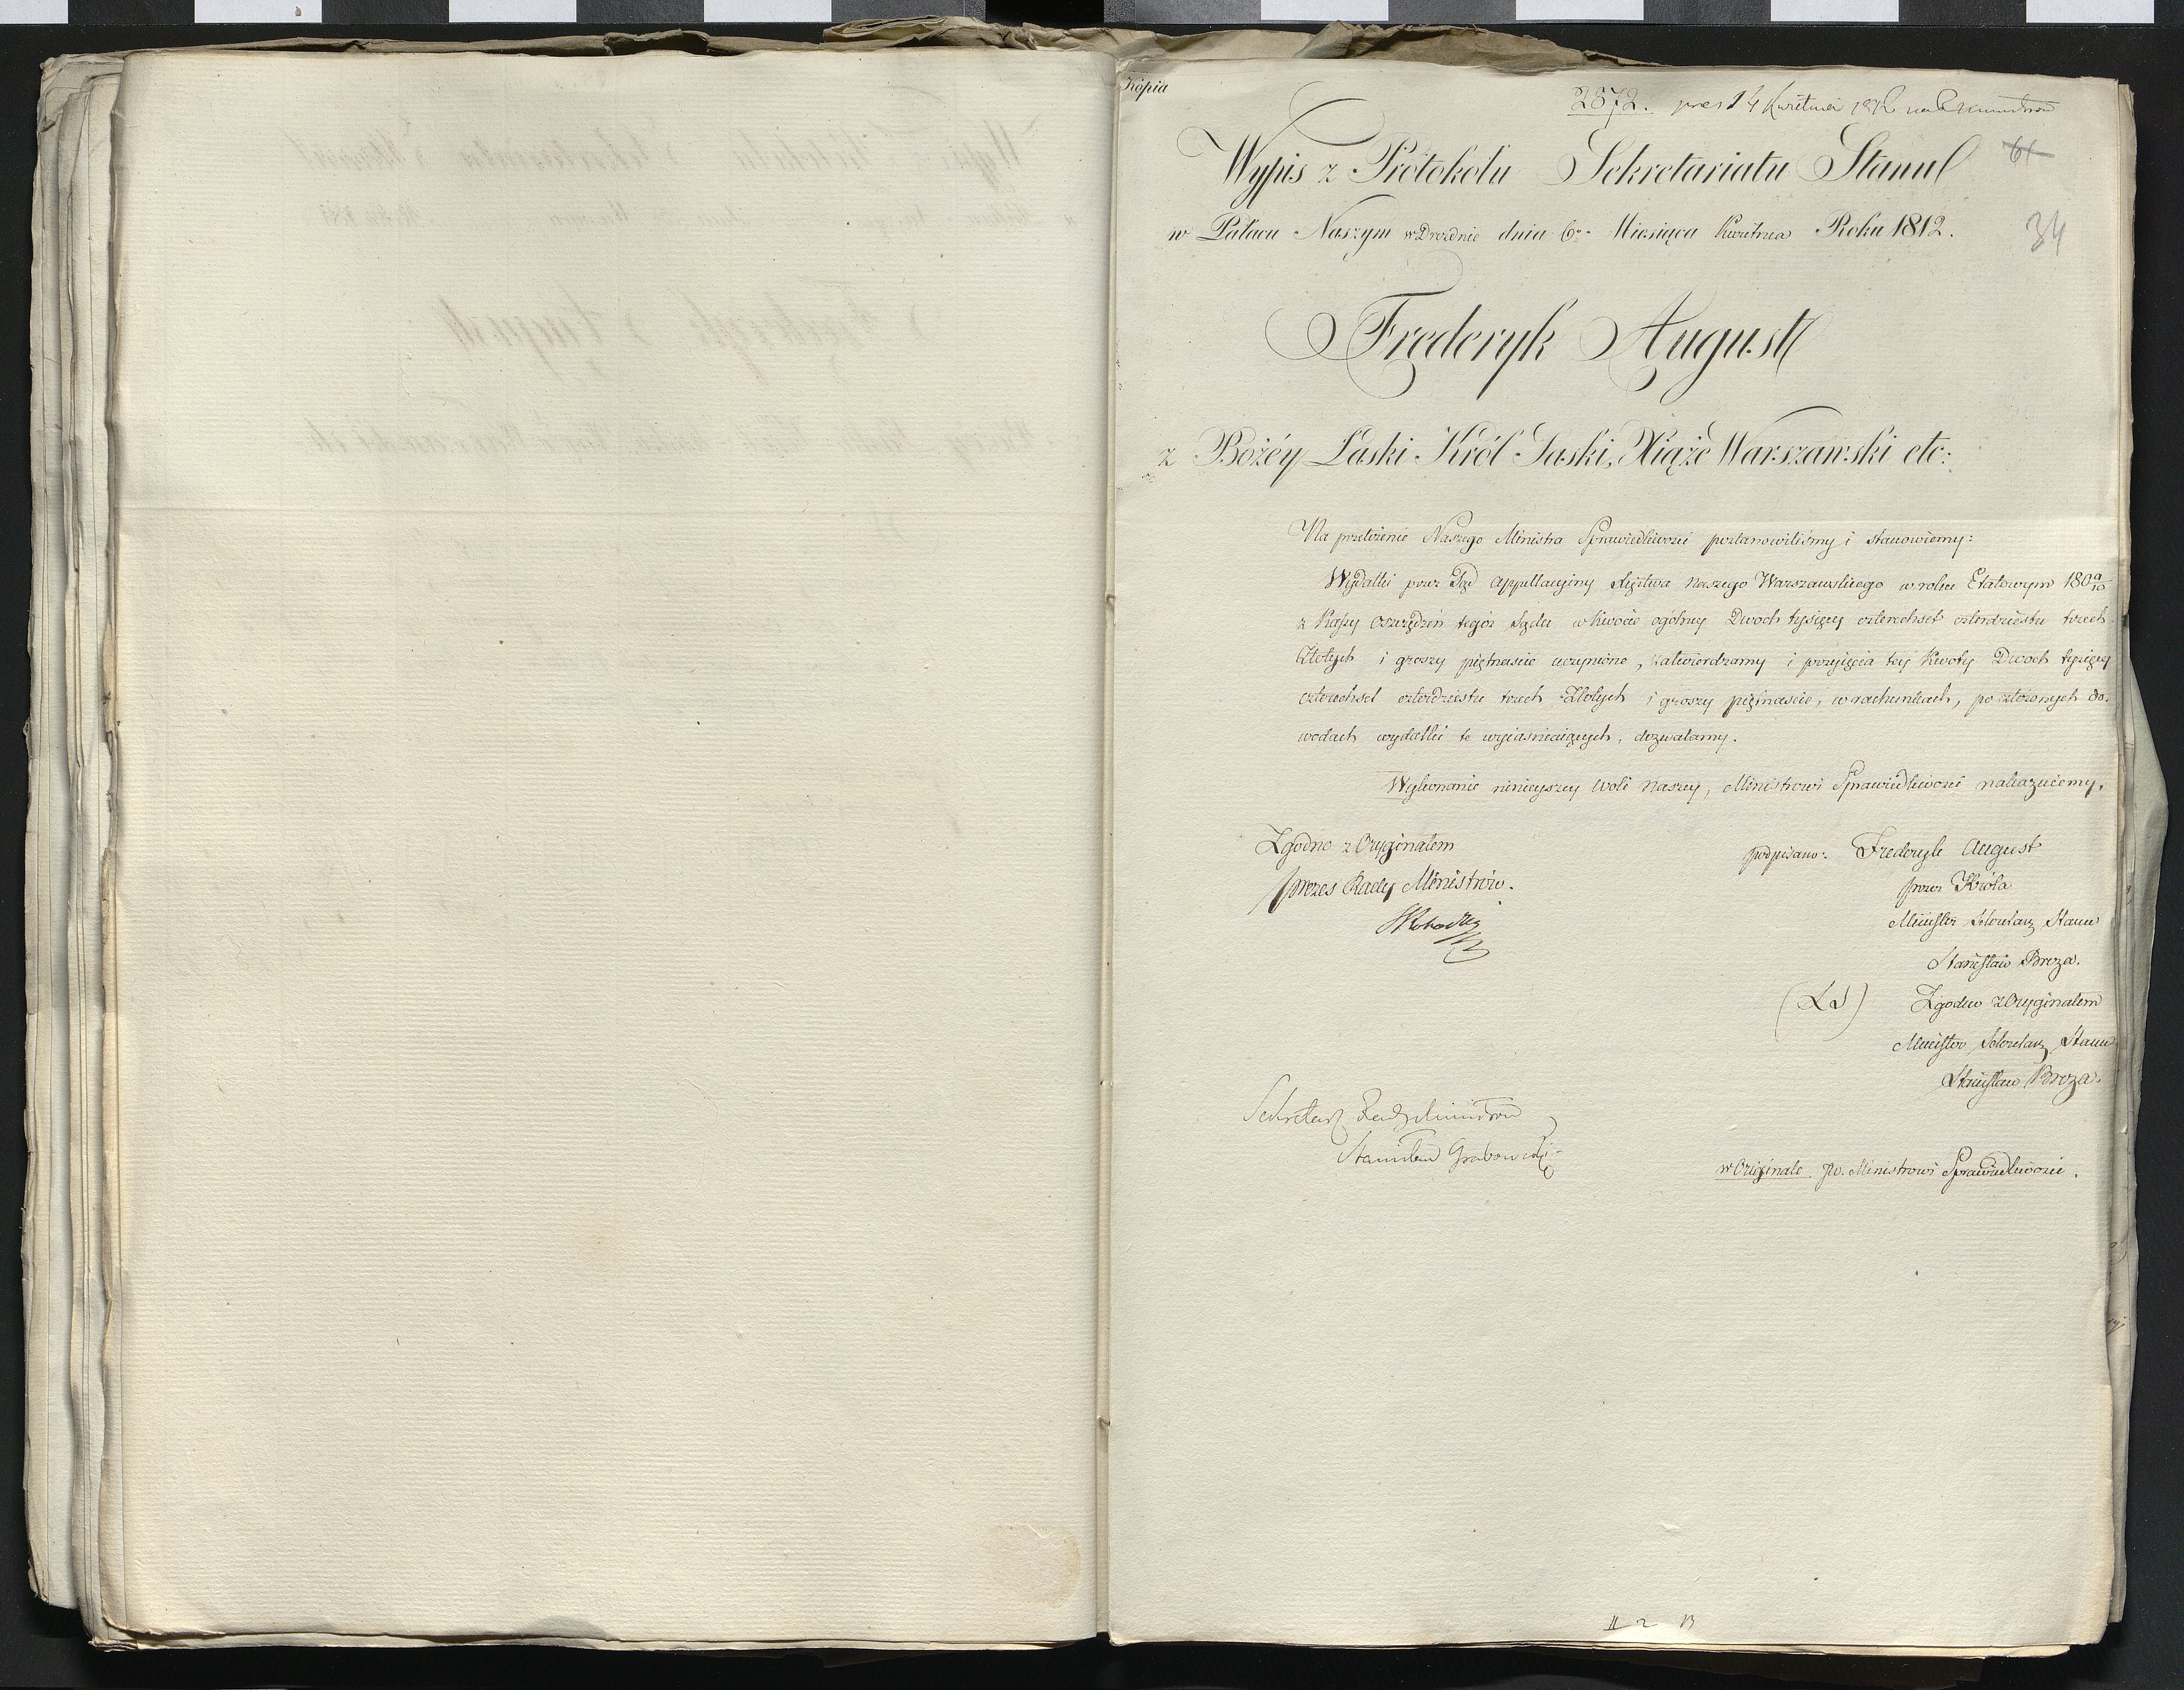 Kópia
2872. pres 14 Kwietnia 1812 na R Ministrow
61
Wypis z Protokołu Sekretariatu Stanu
w Pałacu Naszym w Dreźnie dnia 6go Miesiąca Kwietnia Roku 1812.
34
Frederyk August
z Bożéy Łaski Król Saski, Xiąże Warszawski etc:
Na przełożenie Naszego Ministra Sprawiedliwości postanowiliśmy i stanowiemy:
Wydatki przez Sąd Appellacyiny Xięztwa Naszego Warszawskiego w roku Etatowym 1809/10
z Kassy oszczędzeń tegoż Sądu w kwocie ogólney Dwoch tysięcy czterechset czterdziestu trzech
Złotych i groszy piętnaście uczynione, zatwierdzamy i przyięcia téy kwoty Dwoch tysięcy
czterechset czterdziestu trzech Złotych i groszy piętnaście, w rachunkach, po złożonych do-
wodach wydatki te wyiaśniaiących, dozwalamy.
Wykonanie ninieyszey woli Naszey, Ministrowi Sprawiedliwości nakazuiemy.
Zgodno z Oryginałem
Prezes Rady Ministrów.
podpisano: Frederyk August
przez Króla
Minister Sekretarz Stanu
Stanisław Breza.
(LS) Zgodno z Oryginałem
Minister Sekretarz Stanu
Stanisław Breza.
Sekretarz Rady Ministrow
Stanisław Grabowski
w Oryginale JW. Ministrowi Sprawiedliwości.
II 2 B